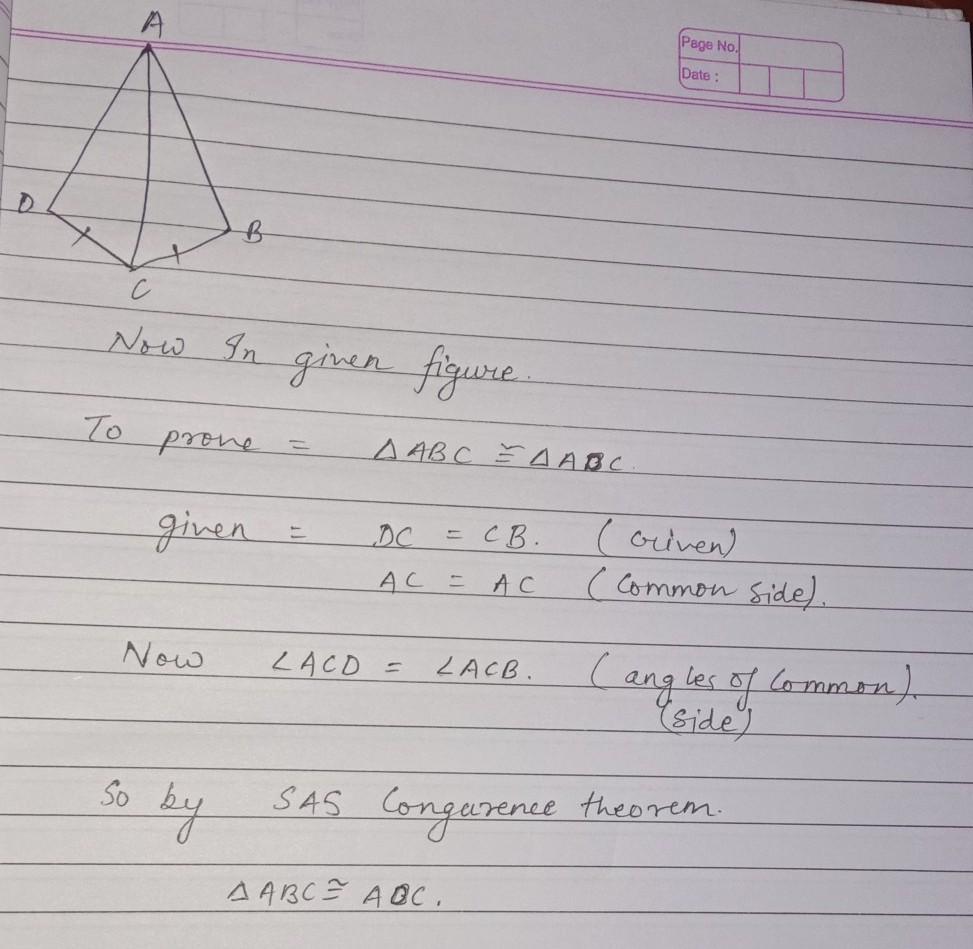 A
Page No.
Date :
D
B
C
Now In given figure.
To prove = △ABC ≅ △ADC.
given = DC = CB. (Given)
AC = AC (Common side).
Now ∠ACD = ∠ACB. (angles of Common).
(side)
So by SAS Congurence theorem.
△ABC ≅ ADC.